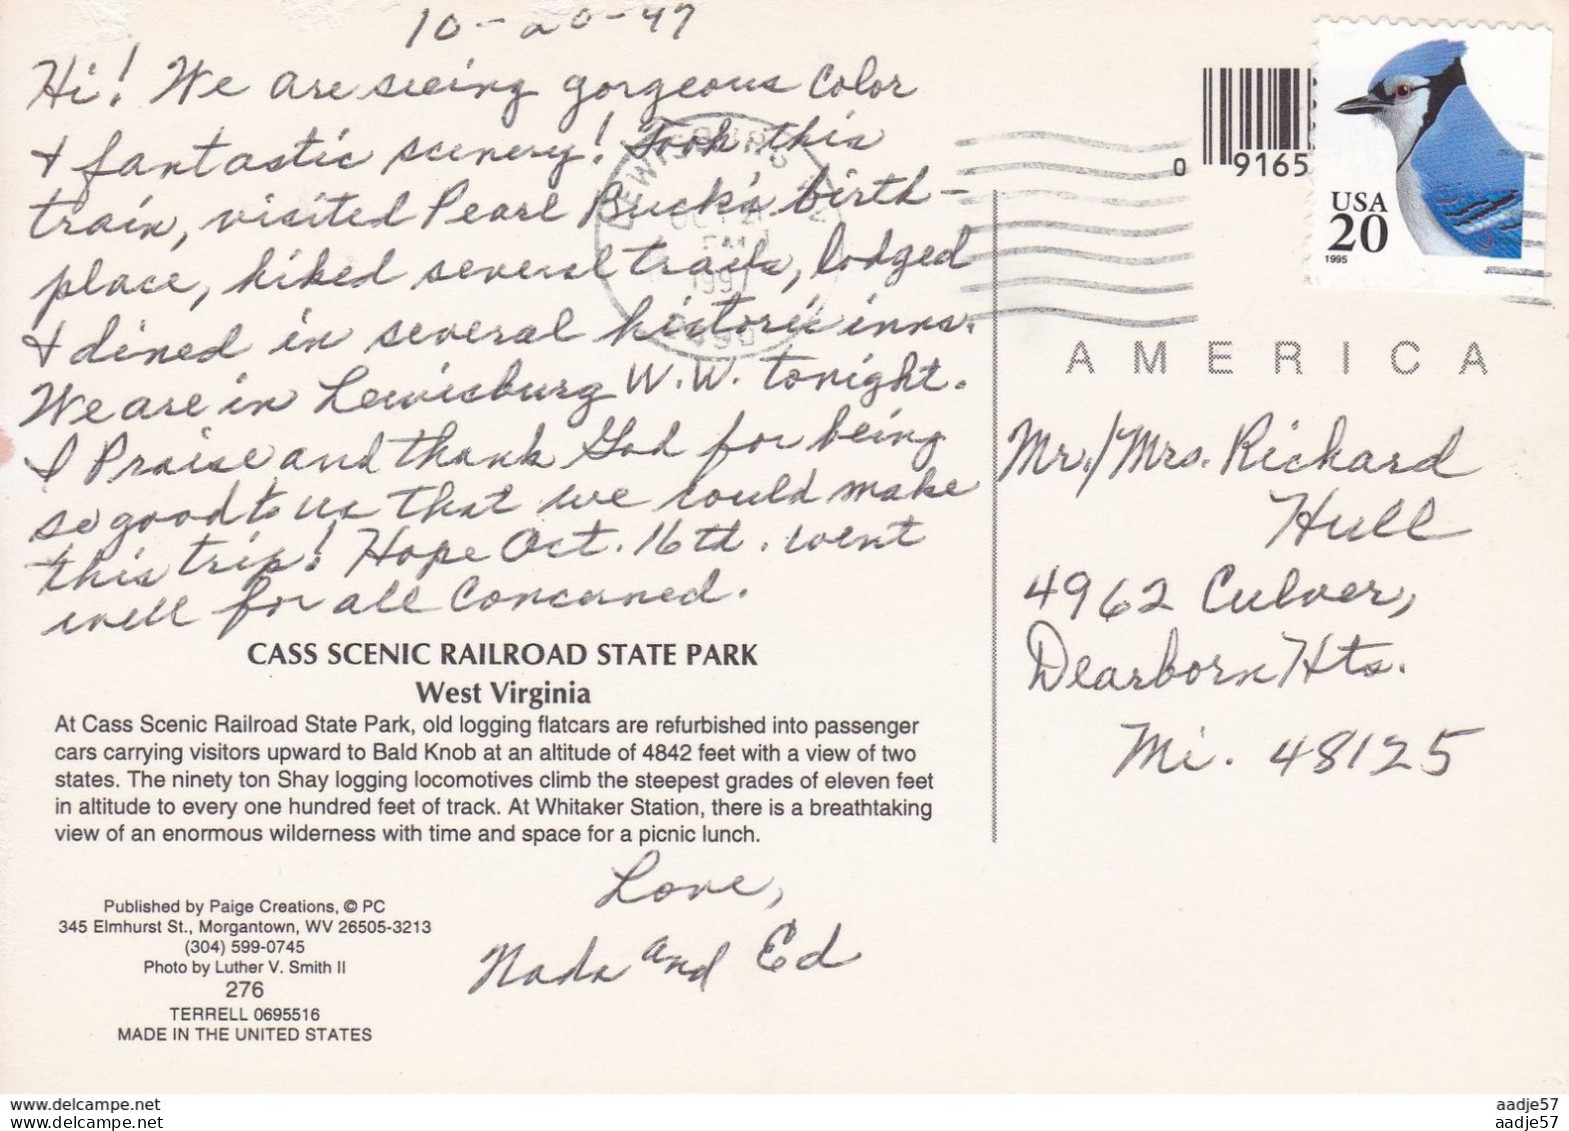 10-20-97
Hi! We are seeing gorgeous color
+ fantastic scenery! Took this
train, visited Pearl Buck's birth-
place, hiked several trails, lodged
+ dined in several historic inns.
We are in Lewisburg W.W. tonight.
I Praise and thank God for being
so good to us that we could make
this trip! Hope Oct. 16th. went
well for all concerned.
CASS SCENIC RAILROAD STATE PARK
West Virginia
At Cass Scenic Railroad State Park, old logging flatcars are refurbished into passenger
cars carrying visitors upward to Bald Knob at an altitude of 4842 feet with a view of two
states. The ninety ton Shay logging locomotives climb the steepest grades of eleven feet
in altitude to every one hundred feet of track. At Whitaker Station, there is a breathtaking
view of an enormous wilderness with time and space for a picnic lunch.
Love,
Nada and Ed
Published by Paige Creations, © PC
345 Elmhurst St., Morgantown, WV 26505-3213
(304) 599-0745
Photo by Luther V. Smith II
276
TERRELL 0695516
MADE IN THE UNITED STATES
LEWISBURG
OCT
PM
1997
0 9165
USA
20
1995
AMERICA
Mr./Mrs. Richard
Hull
4962 Culver,
Dearborn Hts.
Mi. 48125
www.delcampe.net
www.delcampe.net
aadje57
aadje57